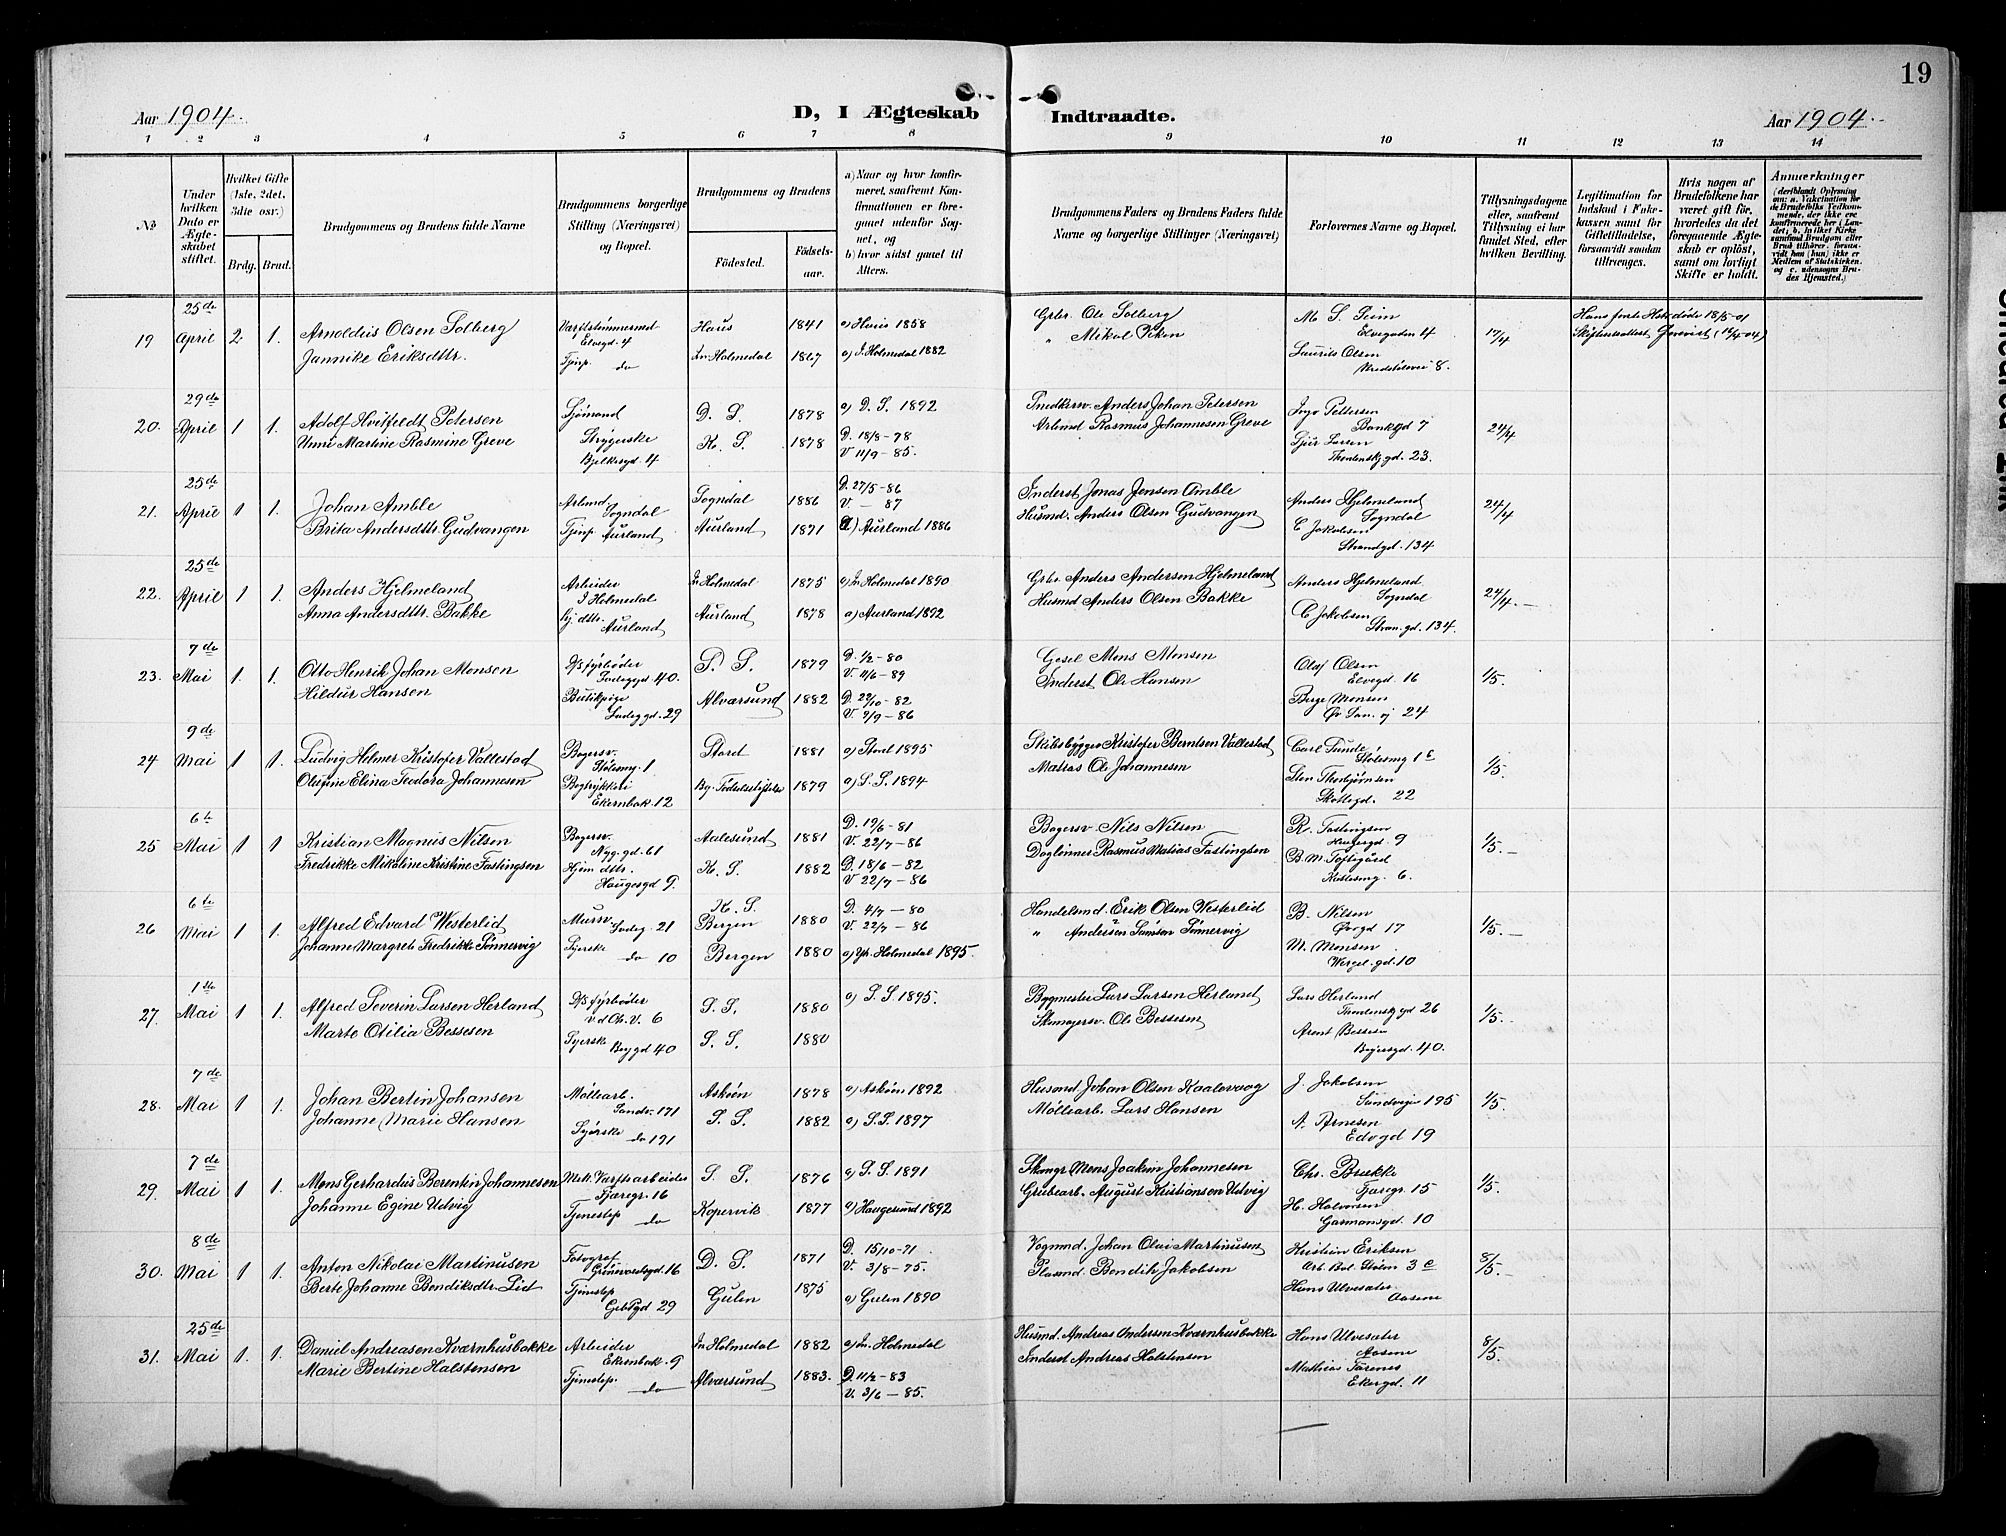 19
Aar 1904.
D, I Ægteskab Indtraadte.
Aar 1904.
1 2 3 4 5 6 7 8 9 10 11 12 13 14
No
Under hvilken Dato er Ægteskabet stiftet.
Hvilket Gifte (1ste, 2det, 3die osv.)
Brdg. Brud.
Brudgommens og Brudens fulde Navne
Brudgommens borgerlige Stilling (Næringsvei) og Bopæl.
Brudgommens og Brudens
Fødested.
Fødselsaar.
a) Naar og hvor konfirmeret, saafremt Konfirmationen er foregaaet udenfor Sognet, og
b) hvor sidst gaaet til Alters.
Brudgommens Faders og Brudens Faders fulde Navne og borgerlige Stillinger (Næringsvei)
Forlovernes Navne og Bopæl.
Tillysningsdagene eller, saafremt Tillysning ei har fundet Sted, efter hvilken Bevilling.
Legitimation for Indskud i Enkekassen samt for Giftetilladelse, forsaavidt saadan tiltrænges.
Hvis nogen af Brudefolkene har været gift før, hvorledes da det foregaaende Ægteskab er opløst, samt om lovligt Skifte er holdt.
Anmærkninger
19 25de April 2 1.
Arnoldus Olsen Solberg
Jannike Eriksdttr.
Elvegd 4
Tjnp. do
Haus 1841 a) Haus 1858
Ir. Holmedal 1867 a) I. Holmedal 1882
Grbr. Ole Solberg
" Mikal
M. S. Seim
Elvegaden 4
Laurits Olsen
8.
17/4
Hans forte Hst døde 18/5-01
20. 29de April 1 1.
Adolf Hvitfeldt Petersen
Unni Martine Rasmine Greve
Sjømand
Strygerske
Bjelkesgd. 4
D. S. 1878 a) D. S. 1892
K. S. 1878 D. 18/8-78
V 11/9-85.
Snedkersv. Anders Johan Petersen
Arbmd Rasmus Johannesen Greve
Pettersen
Bankgd 7
Larsen
23.
24/4
21. 25de April 1 1.
Johan Amble
Brita Andersdttr Gudvangen
Arbmd Sogndal
Tjnp. Aurland
Sogndal 1886 D. 27/5-86
V. - 87
Aurland 1871 a) Aurland 1886
Inderst Jonas Jensen Amble
Husmd. Anders Olsen Gudvangen
Anders Hjelmeland
Sogndal
C Jakobsen
Strandgd. 134
24/4
22. 25de April 1 1.
Anders Hjelmeland
Anna Andersdttr. Bakke
Arbeider
I Holmedal
Gj. dttr.
Aurland
Ir. Holmedal 1875 a) Ir. Holmedal 1890
Aurland 1878 a) Aurland 1892
Grbr Anders Andersen Hjelmeland
Husmd Anders Olsen Bakke
Anders Hjelmeland
Sogndal
C Jakobsen
Stran.gd. 134.
24/4.
23. 7de Mai 1. 1.
Otto Henrik Johan Monsen
Hildur Hansen
D/s fyrbøder
40.
Butikpige
29
S. S. 1879 D. 1/2-80
V. 11/6-89
Alvarsund 1882 D. 29/10-82
V. 9/9-86
Gesel Mons Monsen
Inderst Ole Hansen
Olaf Olsen
Elvegd 16
Berge Monsen
24
1/5.
24 9de Mai 1 1.
Ludvig Helmer Kristofer Vallestad
Olufine Elina Teodora Johannesen
Bagersv.
Stølesmg. 1
Bogtrykkeri
Ekernbak. 12
Stord 1881 a) Stord 1895
Bg. Fødselsstiftelse 1879 a) S. S. 1894
Skibsbygger Kristofer Berntsen Vallestad
Matros Ole Johannesen
Carl Tunde
Stølesmg 1c
Sten Thorbjørnsen
Skottegd. 22
1/5.
25 6te Mai 1 1.
Kristian Magnus Nilsen
Fredrikke Mikaline Kristine Fastingsen
Bagersv.
Nyg. gd. 61
Hjem dttr.
Haugesgd 9.
Aalesund 1881 D. 19/6-81
V. 22/7-86
K. S. 1882 D. 18/6-82
V 22/7-86
Bagersv. Nils Nilsen
Daglønner Rasmus Matias Fastingsen
R. Fastingsen
Haugesgd 9
B. M. Toftegaard
6.
1/5.
26 6te Mai 1 1.
Alfred Edvard Westerlid
Johanne Margreth Fredrikke Sönnervig
Mursv. 21
Syerske do 10
K. S.
Bergen 1880 D. 4/7-80
V. 22/7-86
Bergen 1880 a) Yt. Holmedal 1895.
Handelsmd. Erik Olsen Westerlid
" Andersen Samson Sönnervig
B. Nilsen
Øvregd 17
M. Monsen
Wergel. gd. 10
1/5.
27. 1ste Mai 1 1.
Alfred Severin Larsen Herland
Marte Otilia Bessesen
D/s fyrbøder
6
Syerske
Bøygd 40
S. S. 1880 a) S. S. 1895.
S. S. 1880
Bygmester Lars Larsen Herland
Skomagersv. Ole Bessesen
Lars Herland
26
Arent Bessesen
40.
1/5.
28. 7de Mai 1 1.
Johan Bertin Johansen
Johanne Marie Hansen
Møllearb.
Sandv. 171
Syerske do 191
Askøen 1878 a) Askøen 1892
S. S. 1882 a) S. S. 1897
Husmd Johan Olsen Kaalevaag
Møllearb. Lars Hansen
J. Jakobsen
Sandveien 195
A. Arnesen
19
1/5.
29. 7de Mai 1 1.
Mons Gerhardus Berentin Johannesen
Johanne Egine Udvig
Mek. Varftsarbeider
Fjæregr. 16
Tjenestep do
S. S. 1876 a) S. S. 1891
Kopervik 1877 a) Haugesund 1892
Skomgr Mons Joakim Johannesen
Grubearb. August Kristiansen Udvig
Chr. Brække
Fjæregr. 15
H. Halvorsen
Garmansgd. 10
1/5.
30. 8de Mai 1 1.
Anton Nikolai Martinusen
Berte Johanne Bendiksdtr. Lid
Fotograf
16
Tjenestep
29
D. S. 1871 D. 15/10-71
V. 3/8-75.
Gulen 1875 a) Gulen 1890
Vognmd. Johan Olai Martinusen
Plasmd Bendik Jakobsen
Kristian Eriksen
Arb. Bol. Støien 3c
Hans Ulvesæter
Aasene
8/5.
31. 25de Mai 1. 1.
Daniel Andreasen Kværnhusbakke
Marie Bertine Halstensen
Arbeider
Ekernbak. 9
Tjenestep. do
Ir. Holmedal 1882 a) Ir. Holmedal
Alvarsund 1883. D. 11/2-83
V. 3/6-85.
Husmd. Andreas Andersen Kværnhusbakke
Inderst Andreas Halstensen
Hans Ulvesæter
Aasene
Mathias
Ekergd. 11
8/5.